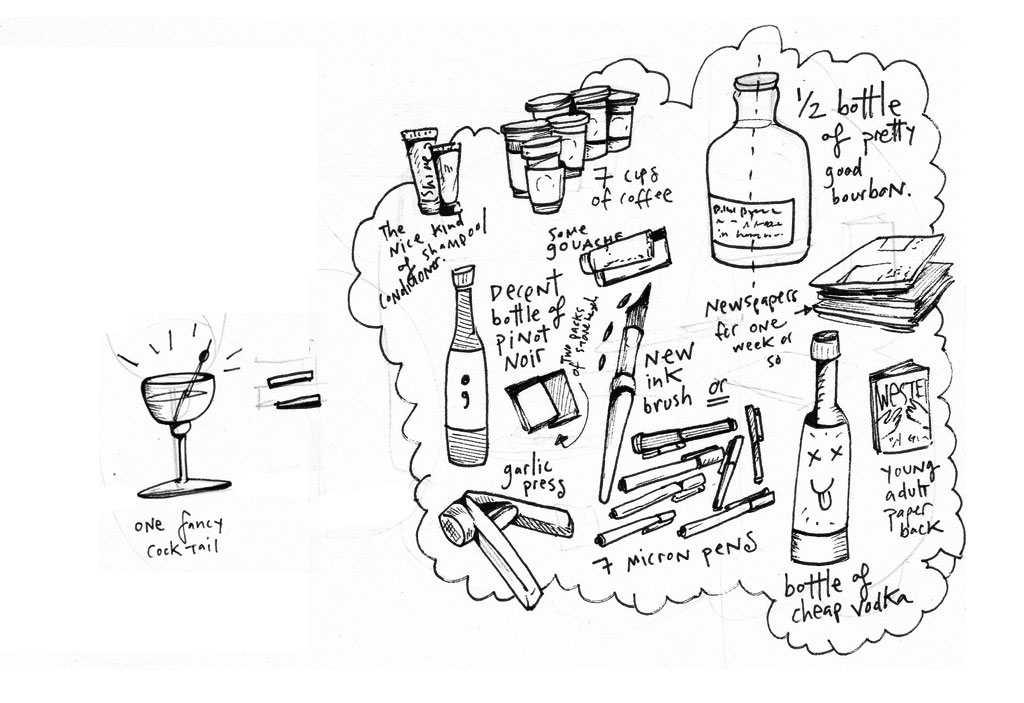 one fancy
cocktail
=
Shine
The
Nice kind
of shampoo/
conditioner.
7 cups
of coffee
1/2 bottle
of pretty
good
bourbon.
some
gouache
Decent
bottle of
pinot
noir
;
Two packs
of
new
ink
brush or
Newspapers
for one
week or
so
WASTE
young
adult
paper
back
garlic
press
7 micron pens
bottle of
cheap vodka